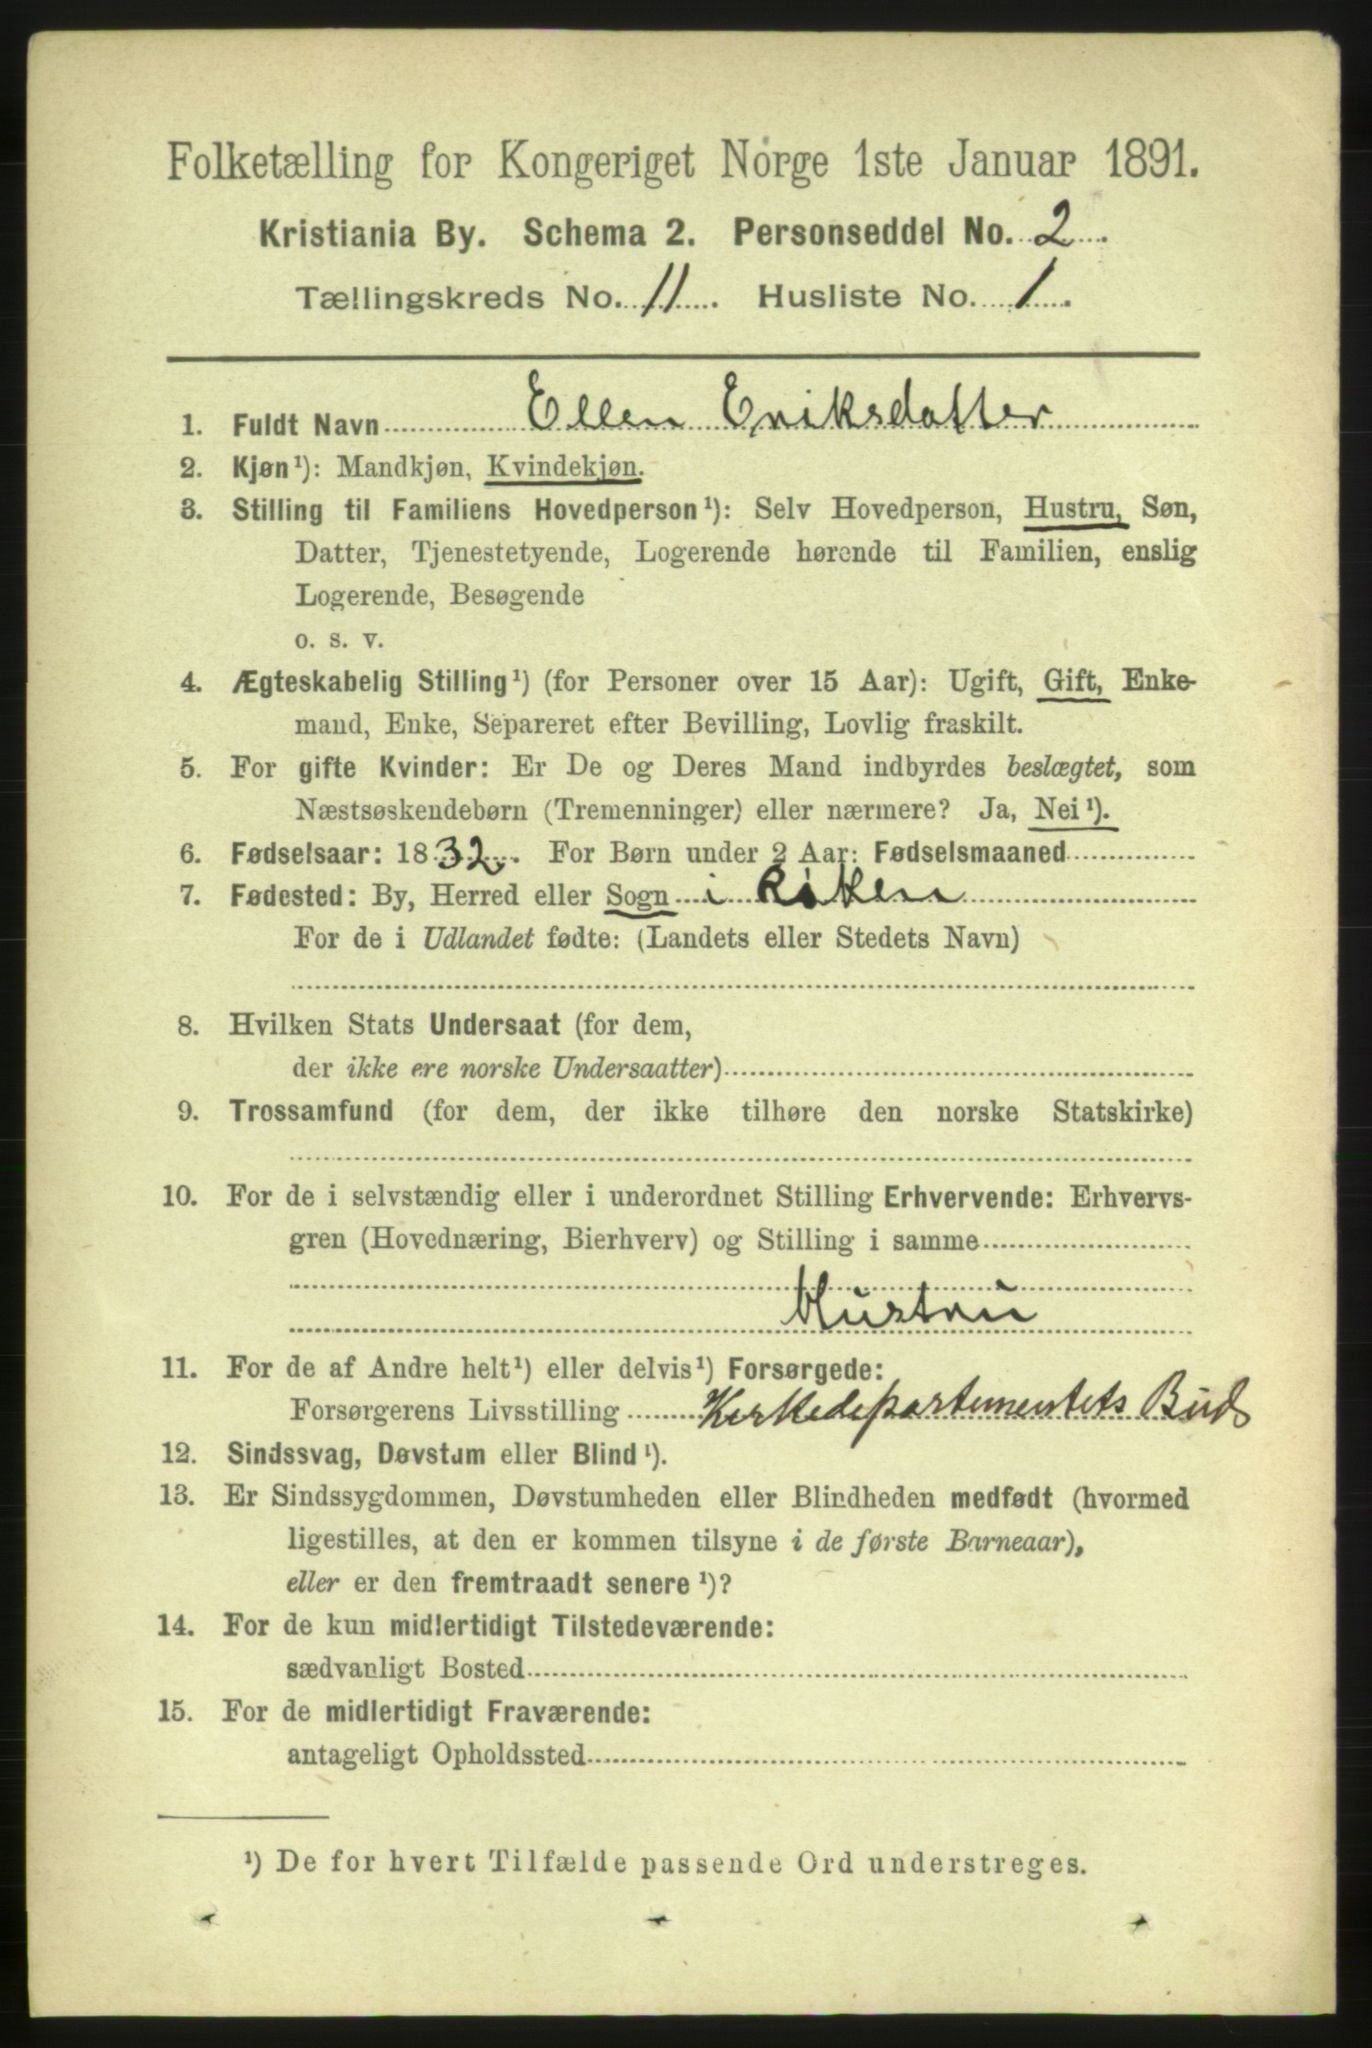 Folketælling for Kongeriget Norge 1ste Januar 1891.
Kristiania By. Schema 2. Personseddel No. 2.
Tællingskreds No. 11. Husliste No. 1.
1. Fuldt Navn Ellen Eriksdatter
2. Kjøn¹): Mandkjøn, Kvindekjøn.
3. Stilling til Familiens Hovedperson¹): Selv Hovedperson, Hustru, Søn,
Datter, Tjenestetyende, Logerende hørende til Familien, enslig
Logerende, Besøgende
o. s. v.
4. Ægteskabelig Stilling¹) (for Personer over 15 Aar): Ugift, Gift, Enke-
mand, Enke, Separeret efter Bevilling, Lovlig fraskilt.
5. For gifte Kvinder: Er De og Deres Mand indbyrdes beslægtet, som
Næstsøskendebørn (Tremenninger) eller nærmere? Ja, Nei¹).
6. Fødselsaar: 1832. For Børn under 2 Aar: Fødselsmaaned
7. Fødested: By, Herred eller Sogn i Røken
For de i Udlandet fødte: (Landets eller Stedets Navn)
8. Hvilken Stats Undersaat (for dem,
der ikke ere norske Undersaatter)
9. Trossamfund (for dem, der ikke tilhøre den norske Statskirke)
10. For de i selvstændig eller i underordnet Stilling Erhvervende: Erhvervs-
gren (Hovednæring, Bierhverv) og Stilling i samme
Hustru
11. For de af Andre helt¹) eller delvis¹) Forsørgede:
Forsørgerens Livsstilling Kirkedepartementets Bud
12. Sindssvag, Døvstum eller Blind¹).
13. Er Sindssygdommen, Døvstumheden eller Blindheden medfødt (hvormed
ligestilles, at den er kommen tilsyne i de første Barneaar),
eller er den fremtraadt senere¹)?
14. For de kun midlertidigt Tilstedeværende:
sædvanligt Bosted
15. For de midlertidigt Fraværende:
antageligt Opholdssted
¹) De for hvert Tilfælde passende Ord understreges.